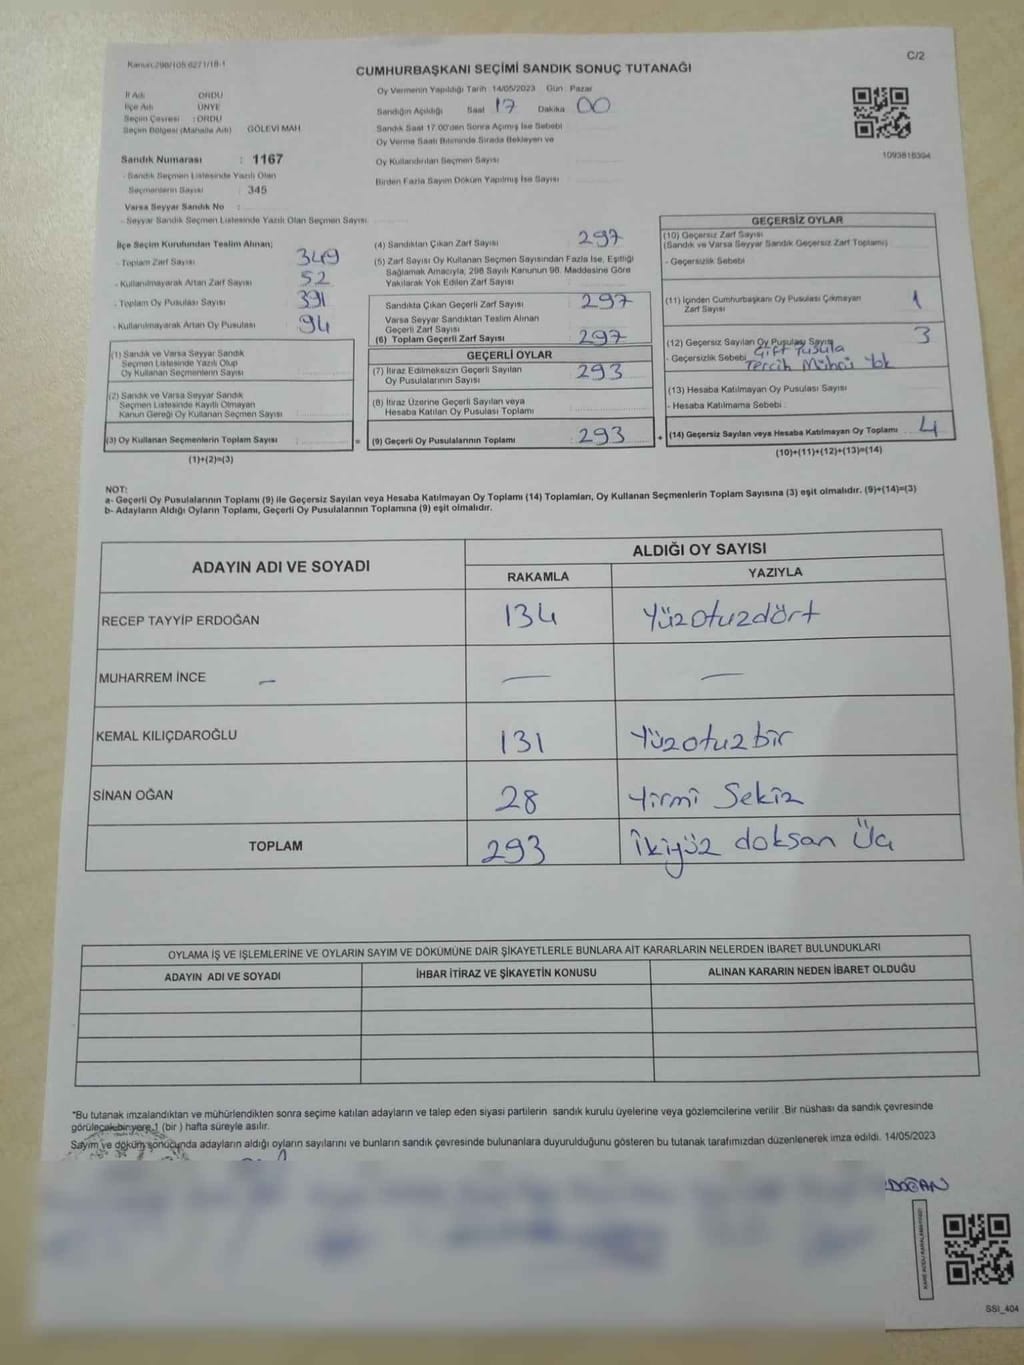 Kanun:298/105 6271/18-1
C/2
CUMHURBAŞKANI SEÇİMİ SANDIK SONUÇ TUTANAĞI
İl Adı : ORDU
İlçe Adı : ÜNYE
Seçim Çevresi : ORDU
Seçim Bölgesi (Mahalle Adı) GÖLEVİ MAH
Sandık Numarası : 1167
- Sandık Seçmen Listesinde Yazılı Olan
Seçmenlerin Sayısı : 345
Varsa Seyyar Sandık No :
- Seyyar Sandık Seçmen Listesinde Yazılı Olan Seçmen Sayısı
Oy Vermenin Yapıldığı Tarih 14/05/2023 Gün Pazar
Sandığın Açıldığı Saat 17 Dakika 00
Sandık Saat 17:00'den Sonra Açılmış İse Sebebi
Oy Verme Saati Bitiminde Sırada Bekleyen ve
Oy Kullandırılan Seçmen Sayısı
Birden Fazla Sayım Döküm Yapılmış İse Sayısı
1093818394
İlçe Seçim Kurulundan Teslim Alınan;
- Toplam Zarf Sayısı : 349
- Kullanılmayarak Artan Zarf Sayısı : 52
- Toplam Oy Pusulası Sayısı : 391
- Kullanılmayarak Artan Oy Pusulası : 94
(1) Sandık ve Varsa Seyyar Sandık
Seçmen Listesinde Yazılı Olup
Oy Kullanan Seçmenlerin Sayısı
(2) Sandık ve Varsa Seyyar Sandık
Seçmen Listesinde Kayıtlı Olmayan
Kanun Gereği Oy Kullanan Seçmen Sayısı
(3) Oy Kullanan Seçmenlerin Toplam Sayısı :
(1)+(2)=(3)
(4) Sandıktan Çıkan Zarf Sayısı : 297
(5) Zarf Sayısı Oy Kullanan Seçmen Sayısından Fazla İse, Eşitliği
Sağlamak Amacıyla, 298 Sayılı Kanunun 98. Maddesine Göre
Yakılarak Yok Edilen Zarf Sayısı :
Sandıkta Çıkan Geçerli Zarf Sayısı : 297
Varsa Seyyar Sandıktan Teslim Alınan
Geçerli Zarf Sayısı
(6) Toplam Geçerli Zarf Sayısı : 297
GEÇERLİ OYLAR
(7) İtiraz Edilmeksizin Geçerli Sayılan : 293
Oy Pusulalarının Sayısı
(8) İtiraz Üzerine Geçerli Sayılan veya
Hesaba Katılan Oy Pusulası Toplamı :
= (9) Geçerli Oy Pusulalarının Toplamı : 293
GEÇERSİZ OYLAR
(10) Geçersiz Zarf Sayısı
(Sandık ve Varsa Seyyar Sandık Geçersiz Zarf Toplamı)
- Geçersizlik Sebebi
(11) İçinden Cumhurbaşkanı Oy Pusulası Çıkmayan 1
Zarf Sayısı
(12) Geçersiz Sayılan Oy Pusulası Sayısı 3
- Geçersizlik Sebebi Çift Pusula
Tercih Mühürü Yok
(13) Hesaba Katılmayan Oy Pusulası Sayısı
- Hesaba Katılmama Sebebi :
+ (14) Geçersiz Sayılan veya Hesaba Katılmayan Oy Toplamı 4
(10)+(11)+(12)+(13)=(14)
NOT:
a- Geçerli Oy Pusulalarının Toplamı (9) ile Geçersiz Sayılan veya Hesaba Katılmayan Oy Toplamı (14) Toplamları, Oy Kullanan Seçmenlerin Toplam Sayısına (3) eşit olmalıdır. (9)+(14)=(3)
b- Adayların Aldığı Oyların Toplamı, Geçerli Oy Pusulalarının Toplamına (9) eşit olmalıdır.
ADAYIN ADI VE SOYADI
ALDIĞI OY SAYISI
RAKAMLA YAZIYLA
RECEP TAYYİP ERDOĞAN 134 Yüzotuzdört
MUHARREM İNCE — — —
KEMAL KILIÇDAROĞLU 131 Yüzotuzbir
SİNAN OĞAN 28 Yirmi Sekiz
TOPLAM 293 İkiyüz doksan Üç
OYLAMA İŞ VE İŞLEMLERİNE VE OYLARIN SAYIM VE DÖKÜMÜNE DAİR ŞİKAYETLERLE BUNLARA AİT KARARLARIN NELERDEN İBARET BULUNDUKLARI
ADAYIN ADI VE SOYADI İHBAR İTİRAZ VE ŞİKAYETİN KONUSU ALINAN KARARIN NEDEN İBARET OLDUĞU
*Bu tutanak imzalandıktan ve mühürlendikten sonra seçime katılan adayların ve talep eden siyasi partilerin sandık kurulu üyelerine veya gözlemcilerine verilir .Bir nüshası da sandık çevresinde
görülecek bir yere 1 (bir ) hafta süreyle asılır.
Sayım ve döküm sonucunda adayların aldığı oyların sayılarını ve bunların sandık çevresinde bulunanlara duyurulduğunu gösteren bu tutanak tarafımızdan düzenlenerek imza edildi. 14/05/2023
DOĞAN
SSI_404